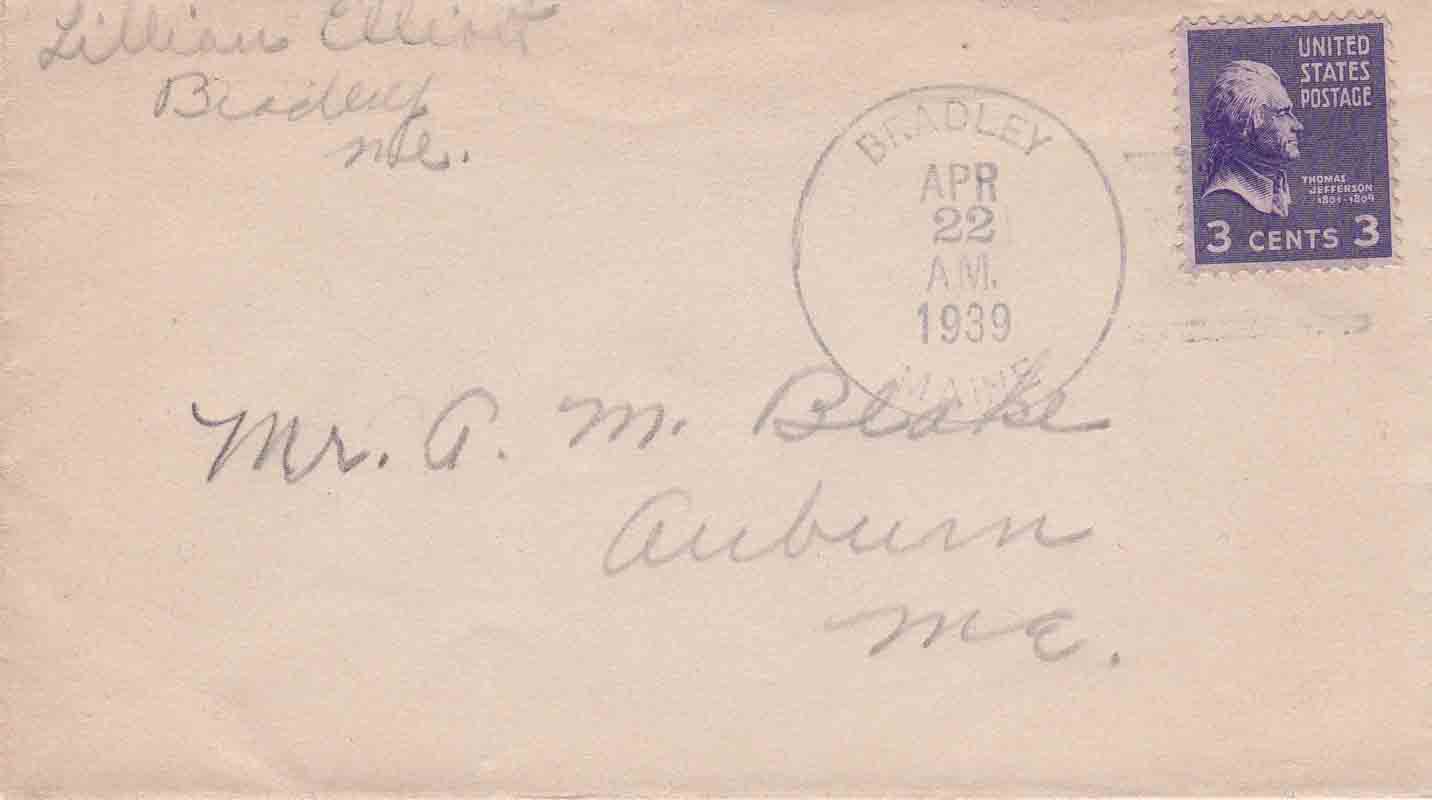 Lillian Elliott
Bradley
Me.
BRADLEY
APR
22
A.M.
1939
MAINE
UNITED
STATES
POSTAGE
THOMAS
JEFFERSON
1801-1809
3 CENTS 3
Mr. A. M. Blake
Auburn
Me.